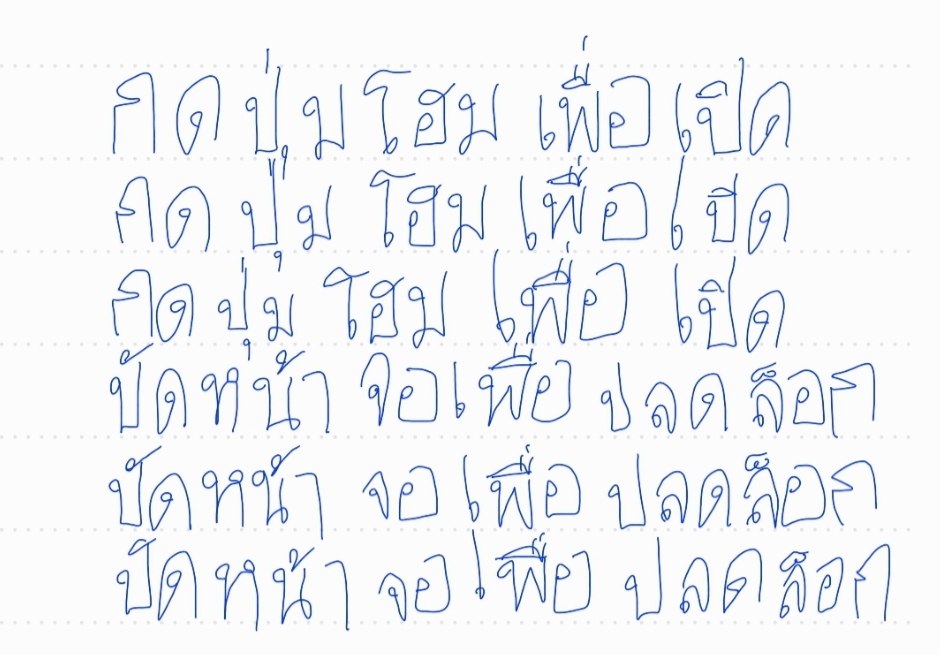 กดปุ่มโฮมเพื่อเปิด
กดปุ่มโฮมเพื่อเปิด
กดปุ่มโฮมเพื่อเปิด
ปัดหน้าจอเพื่อปลดล็อก
ปัดหน้าจอเพื่อปลดล็อก
ปัดหน้าจอเพื่อปลดล็อก